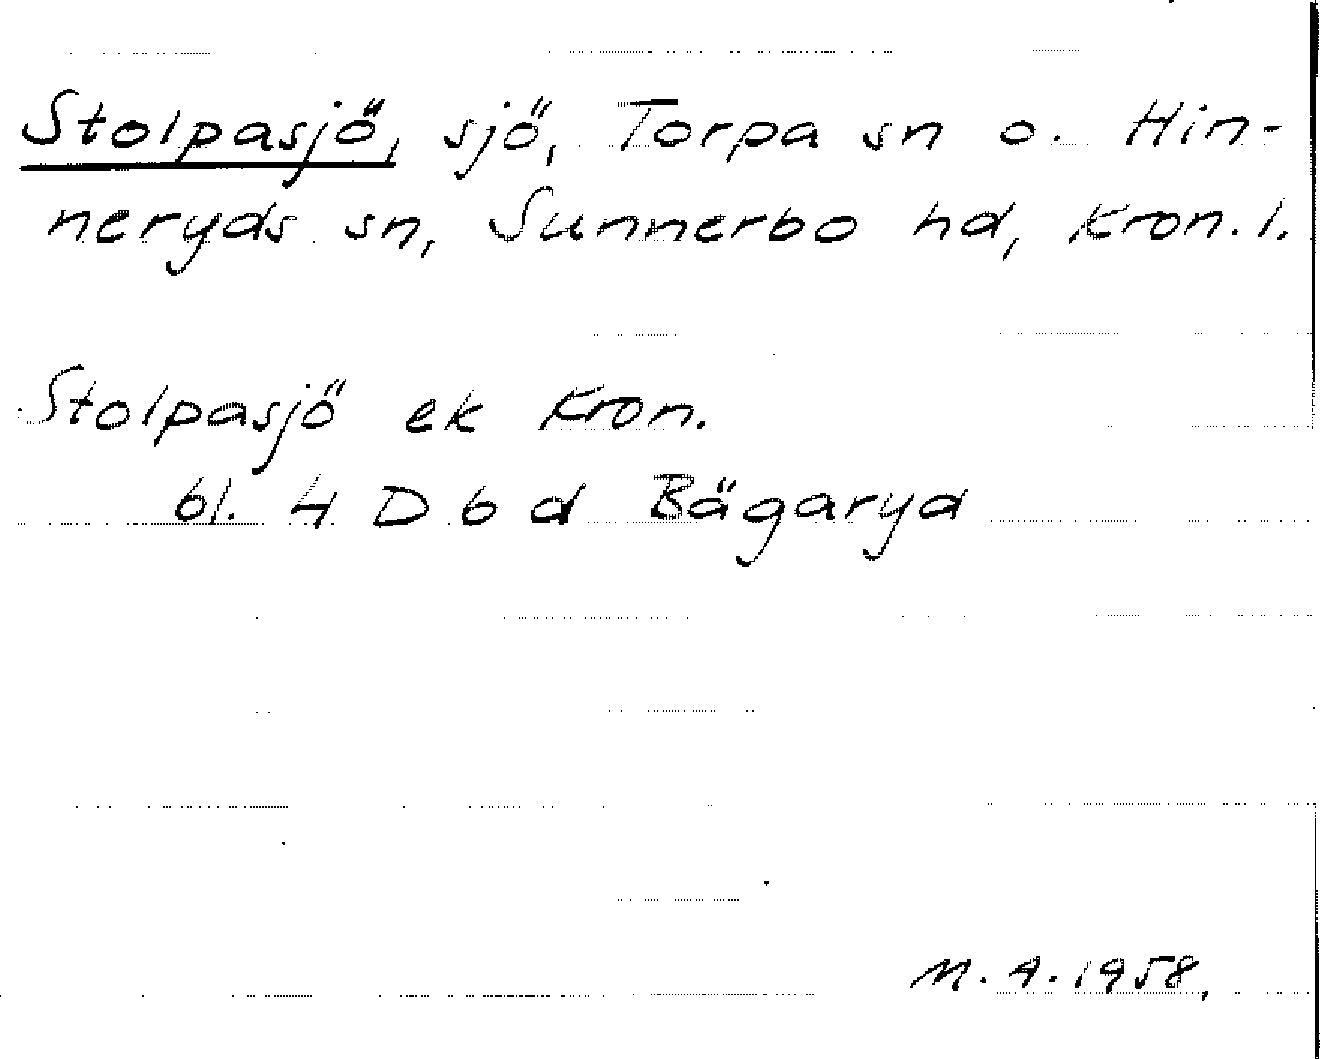 Stolpasjö, sjö, Torpa sn o. Hin-
neryds sn, Sunnerbo hd, Kron. l.
Stolpasjö ek Kron.
bl. 4 D b d Bägaryd
M. A. 1958,